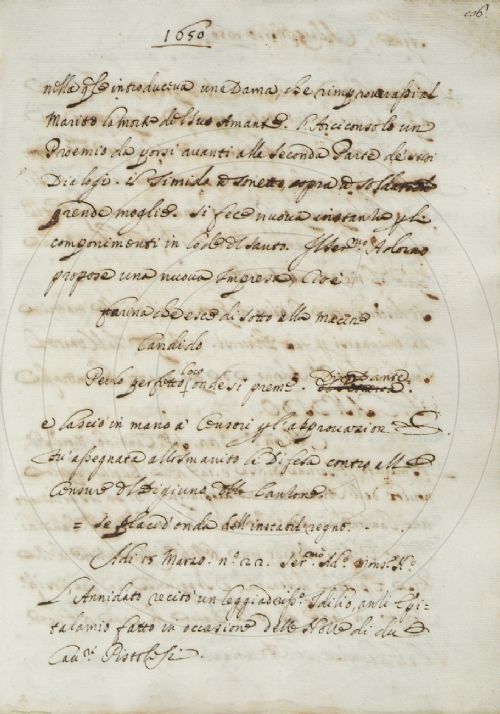 1650
nella qle introduceva una Dama, che rimproverassi al
Marito la morte del suo Amante. L'Arciconsolo un
Proemio da porsi avanti alla seconda Parte de suoi
Dialogi. il Timido il sonetto, sopra
prende moglie. Si fece nuova instanza p li
componimenti in lode del Santo. Il Ser.mo Adorno
propose una nuova Impresa cioè
farina che esce di sotto alla macine
Candido
Pel lo perfetto loco onde si preme. Dante.
e lasciò in mano a Censori p l'approvazion.
fu assegnata allo Smarito la Difesa contro alle
Censure del Digiuno
= Se placid'onda dell'instabil regno.
Adi 15 Marzo. n.º 22. Ser.mo Ad.º
L'Annidato recitò un leggiadriss.º Idilio, anzi Epi-
talamio fatto in occasione delle Nozze di du
Cav.ri Pistolesi.